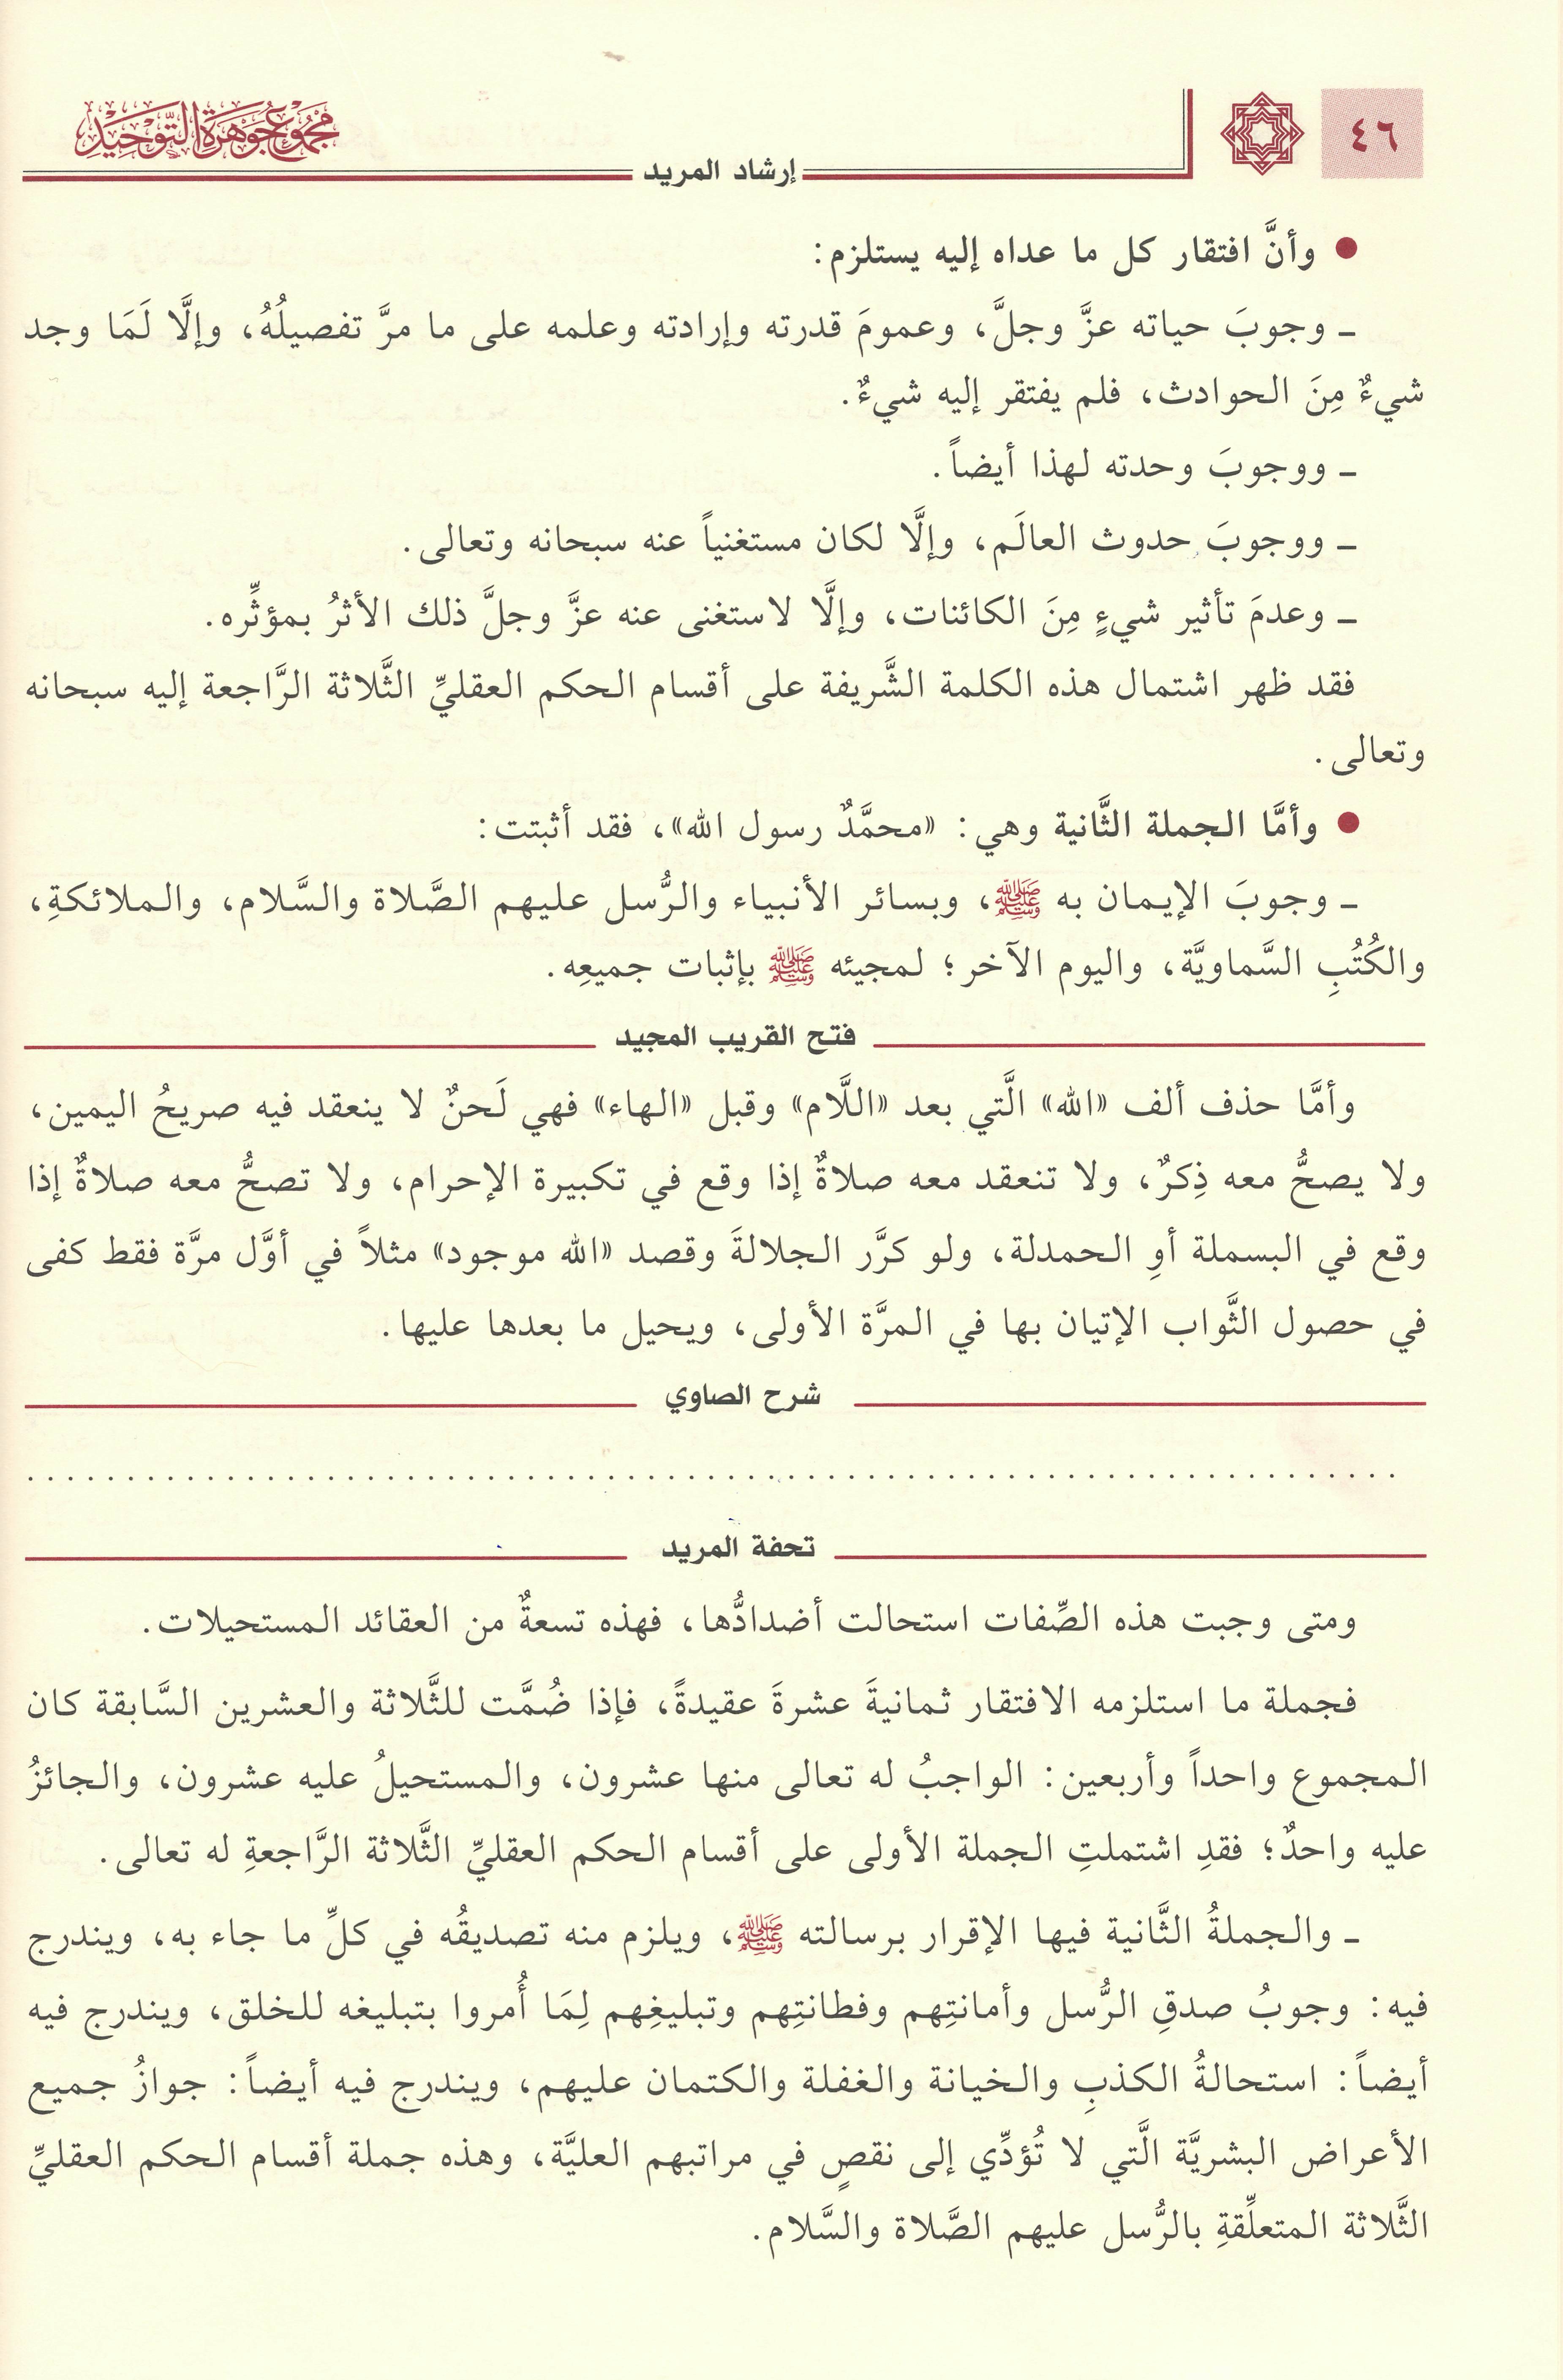 ٤٦
مجموع جوهرة التوحيد
إرشاد المريد
● وأنَّ افتقار كل ما عداه إليه يستلزم:
ـ وجوبَ حياته عزَّ وجلَّ، وعمومَ قدرته وإرادته وعلمه على ما مرَّ تفصيلُهُ، وإلَّا لَمَا وجد
شيءٌ مِنَ الحوادث، فلم يفتقر إليه شيءٌ.
ـ ووجوبَ وحدته لهذا أيضاً.
ـ ووجوبَ حدوث العالَم، وإلَّا لكان مستغنياً عنه سبحانه وتعالى.
ـ وعدمَ تأثير شيءٍ مِنَ الكائنات، وإلَّا لاستغنى عنه عزَّ وجلَّ ذلك الأثرُ بمؤثِّره.
فقد ظهر اشتمال هذه الكلمة الشَّريفة على أقسام الحكم العقليِّ الثَّلاثة الرَّاجعة إليه سبحانه
وتعالى.
● وأمَّا الجملة الثَّانية وهي: «محمَّدٌ رسول الله»، فقد أثبتت:
ـ وجوبَ الإيمان به ﷺ، وبسائر الأنبياء والرُّسل عليهم الصَّلاة والسَّلام، والملائكةِ،
والكُتُبِ السَّماويَّة، واليوم الآخر؛ لمجيئه ﷺ بإثبات جميعِه.
فتح القريب المجيد
وأمَّا حذف ألف «الله» الَّتي بعد «اللَّام» وقبل «الهاء» فهي لَحنٌ لا ينعقد فيه صريحُ اليمين،
ولا يصحُّ معه ذِكرٌ، ولا تنعقد معه صلاةٌ إذا وقع في تكبيرة الإحرام، ولا تصحُّ معه صلاةٌ إذا
وقع في البسملة أوِ الحمدلة، ولو كرَّر الجلالةَ وقصد «الله موجود» مثلاً في أوَّل مرَّة فقط كفى
في حصول الثَّواب الإتيان بها في المرَّة الأولى، ويحيل ما بعدها عليها.
شرح الصاوي
. . . . . . . . . . . . . . . . . . . . . . . . . . . . . . . . . . . . . . . . . . . . . . . . . . . . . . . . . . . . . . . . . . . . .
تحفة المريد
ومتى وجبت هذه الصِّفات استحالت أضدادُّها، فهذه تسعةٌ من العقائد المستحيلات.
فجملة ما استلزمه الافتقار ثمانيةَ عشرةَ عقيدةً، فإذا ضُمَّت للثَّلاثة والعشرين السَّابقة كان
المجموع واحداً وأربعين: الواجبُ له تعالى منها عشرون، والمستحيلُ عليه عشرون، والجائزُ
عليه واحدٌ؛ فقدِ اشتملتِ الجملة الأولى على أقسام الحكم العقليِّ الثَّلاثة الرَّاجعةِ له تعالى.
ـ والجملةُ الثَّانية فيها الإقرار برسالته ﷺ، ويلزم منه تصديقُه في كلِّ ما جاء به، ويندرج
فيه: وجوبُ صدقِ الرُّسل وأمانتِهم وفطانتِهم وتبليغِهم لِمَا أُمروا بتبليغه للخلق، ويندرج فيه
أيضاً: استحالةُ الكذبِ والخيانة والغفلة والكتمان عليهم، ويندرج فيه أيضاً: جوازُ جميع
الأعراض البشريَّة الَّتي لا تُؤدِّي إلى نقصٍ في مراتبهم العليَّة، وهذه جملة أقسام الحكم العقليِّ
الثَّلاثة المتعلِّقةِ بالرُّسل عليهم الصَّلاة والسَّلام.